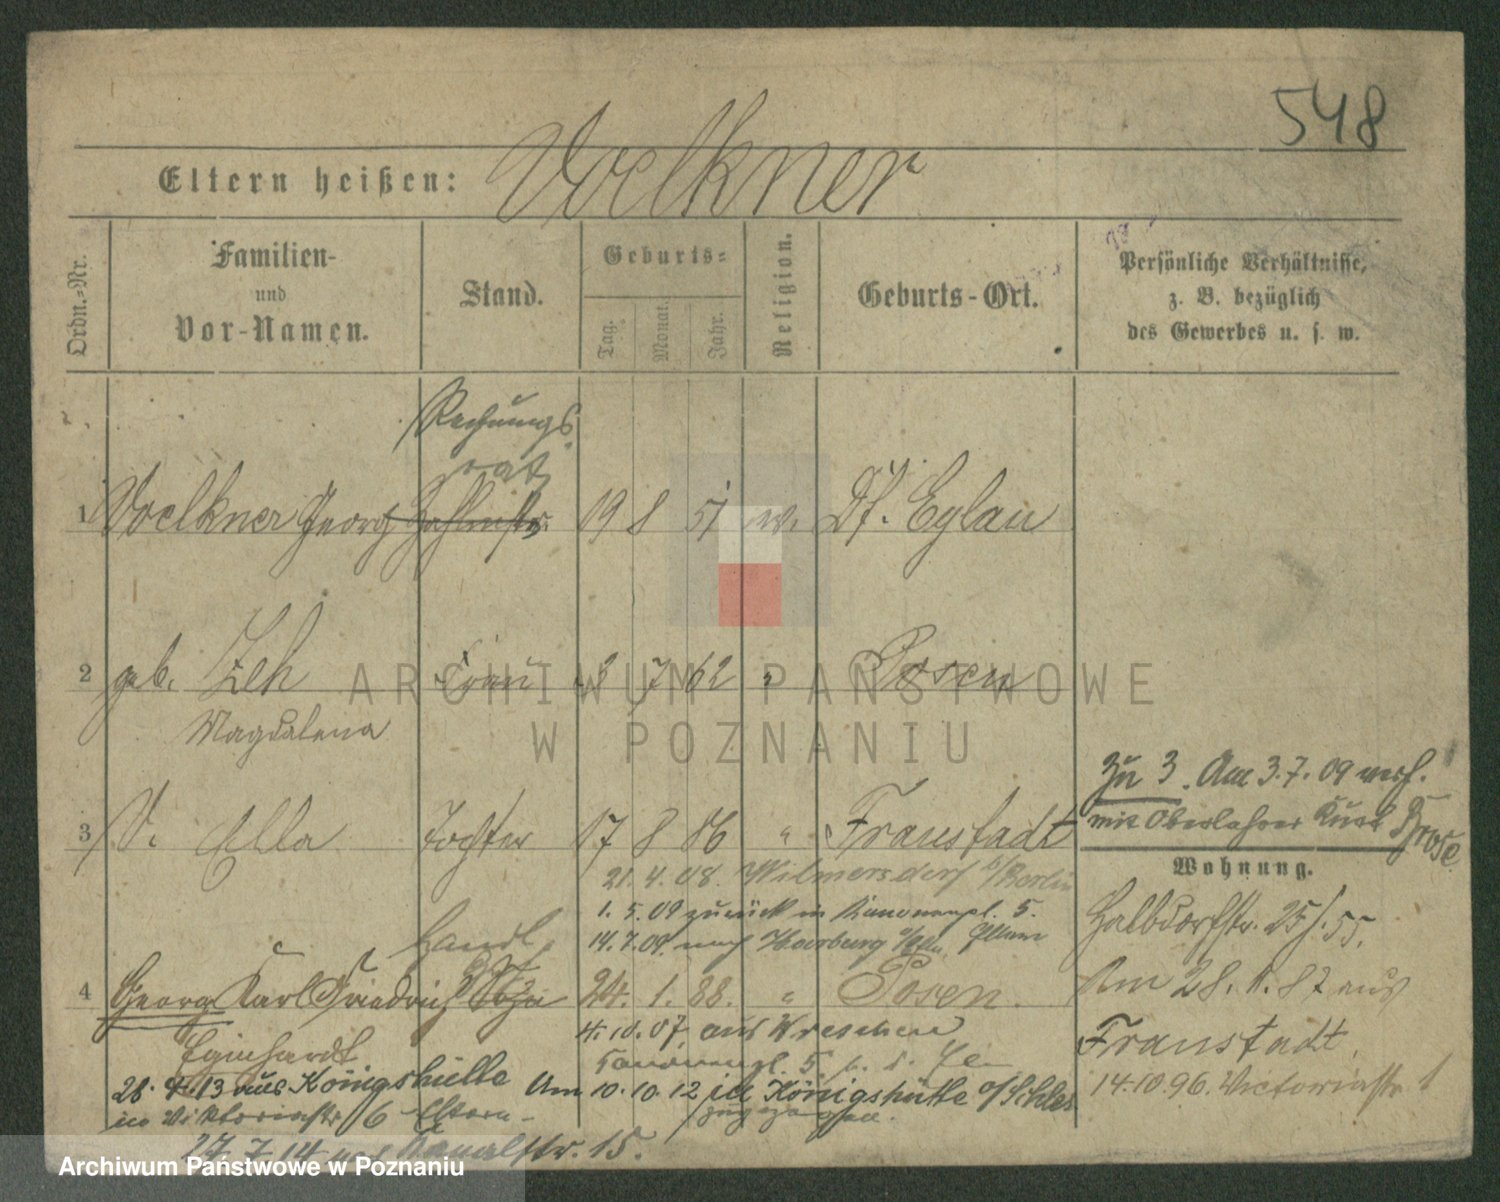 548
Eltern heißen: Voelkner
Ordn.=Nr.
Familien-
und
Vor-Namen.
Stand.
Geburts=
Tag.
Monat.
Jahr.
Religion.
Geburts-Ort.
Persönliche Verhältnisse,
z. B. bezüglich
des Gewerbes u. s. w.
Rechnungs
rat
1 Voelkner Georg Zahlmstr. 19 8 51 ev. Dt. Eylau
2 geb. Zeh Frau 7 62 " Posen
Magdalena
Zu 3. Am 3.7.09 verh.
mit Oberlehrer Kurt Brose
3 V. Ella Tochter 17 8 86 " Fraustadt
Wohnung.
21.4.08. Wilmersdorf b/Berlin
1.5.09 zurück in Kanonenpl. 5.
14.7.09. nach Harburg a/Elbe
Halbdorfstr. 25/.55.
Handl.
4 Georg Karl Friedrich Sohn 24. 1. 88. " Posen.
Am 28. 1. 87 aus
4.10.07. aus Wreschen
Fraustadt.
Eginhardt
Kanonenpl. 5.
28.4.13 aus Königshütte Am 10.10.12 in Königshütte o/Schles
14.10.96. Victoriastr
in Viktoriastr 16 Eltern
zugezogen.
27.7.14 Kanalstr. 15.
ARCHIWUM PAŃSTWOWE
W POZNANIU
Archiwum Państwowe w Poznaniu